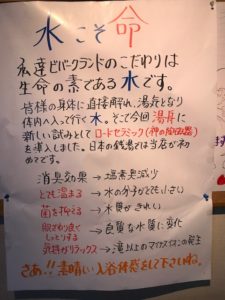 水こそ命
私達ビバークランドのこだわりは
生命の素である水です。
皆様の身体に直接触れ、湯気となり
体内へ入って行く水。そこで今回湯舟に
新しい試みとしてロードセラミック(神の陶器)
を導入しました。日本の銭湯では当店が初
めてです。
消臭効果→塩素臭減少
とても温まる→水の分子がとても小さい
菌を抑える→水質がきれい
肌ざわり良くしっとりする→良質な水質に変化
気持がリラックス→滝以上のマイナスイオンの発生
さあ!!素晴しい入浴体感をして下さいね。